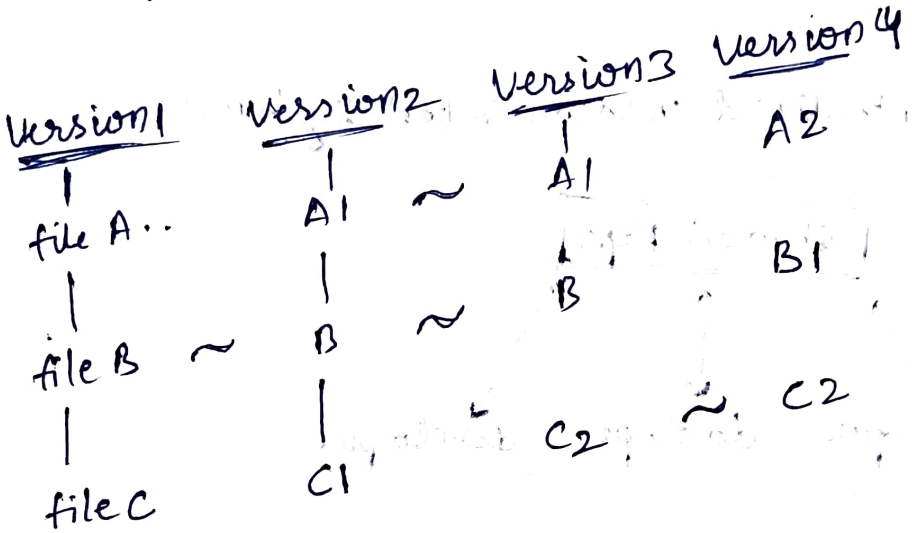 Version1 Version2 Version3 Version4
file A.. A1 ~ A1 A2
file B ~ B ~ B B1
file C C1 C2 ~ C2